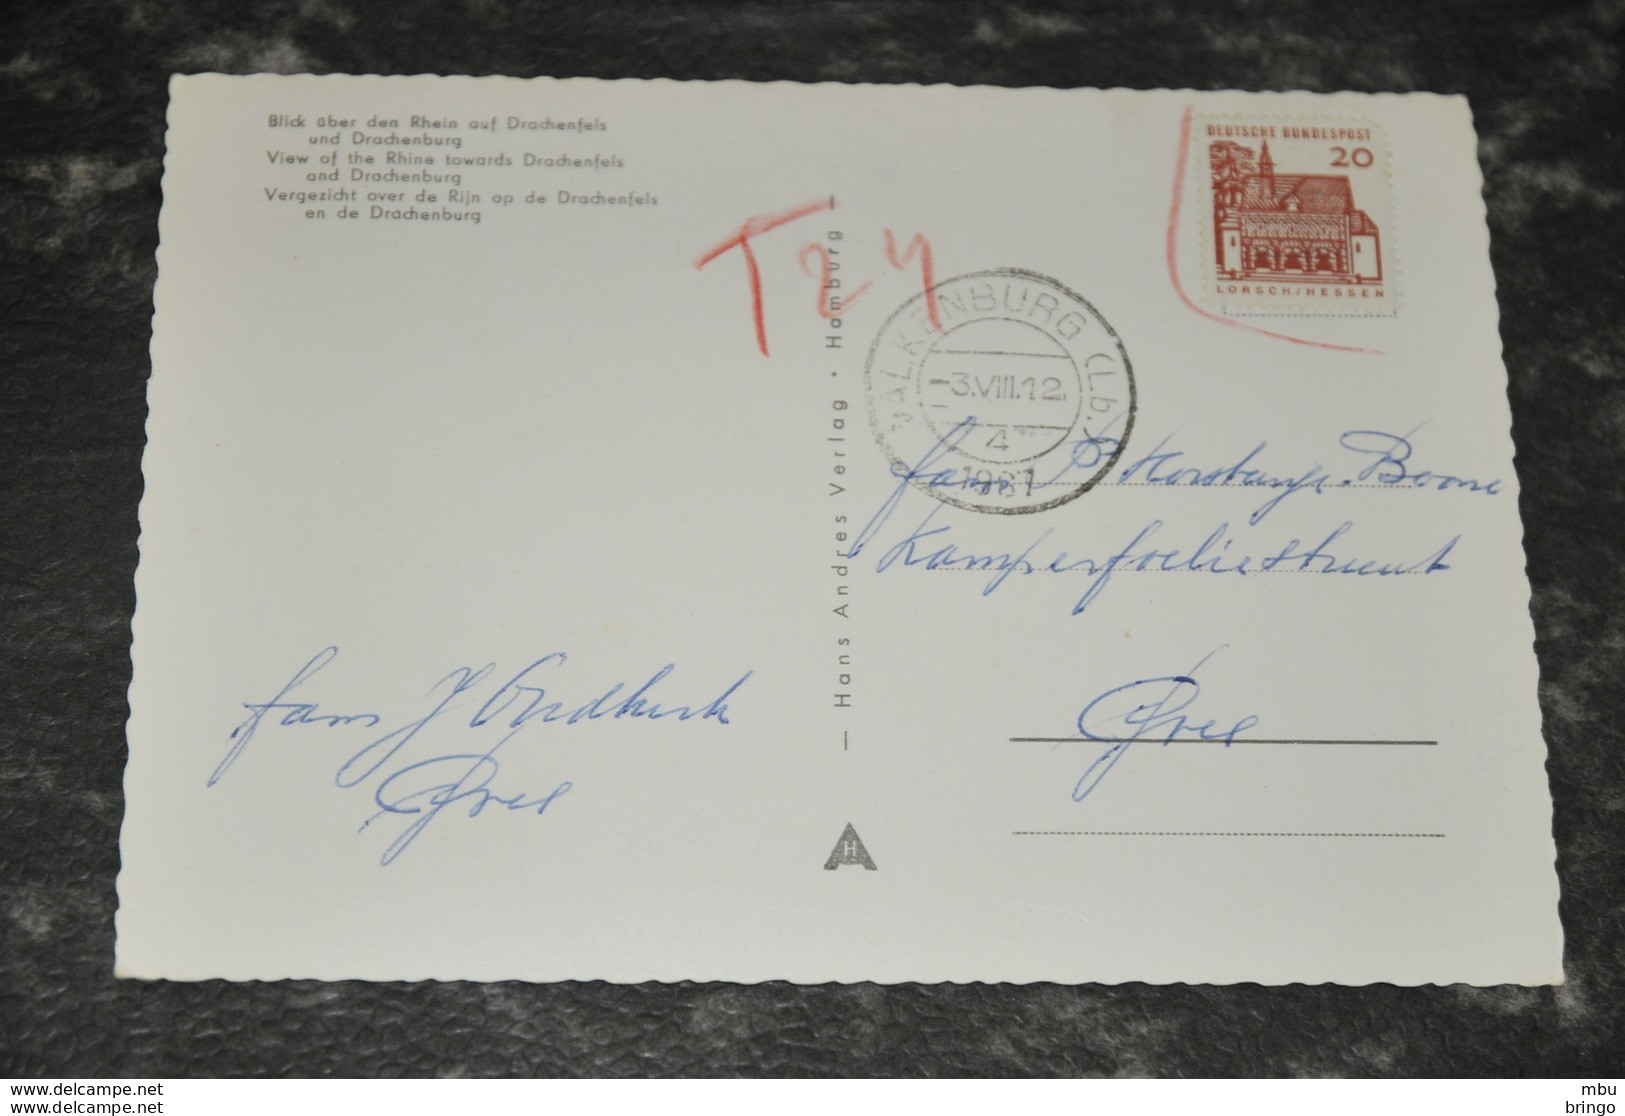 Blick über den Rhein auf Drachenfels
und Drachenburg
View of the Rhine towards Drachenfels
and Drachenburg
Vergezicht over de Rijn op de Drachenfels
en de Drachenburg
T 24
DEUTSCHE BUNDESPOST
20
LORSCH/HESSEN
VALKENBURG (Lb.)
-3.VIII.12.
4
1967
— Hans Andres Verlag · Hamburg —
fam P Boone
Kamperfoeliestraat
Goes
fam J Oudkerk
Goes
H
delcampe.net
delcampe.net
mbu
bringo